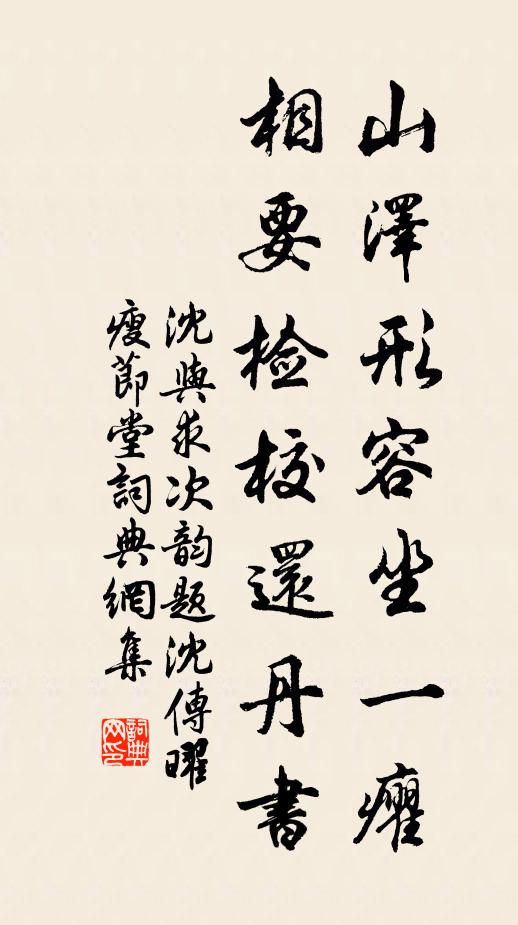 山澤形容坐一癯
相要檢校還丹書
沈與求次韵题沈傳曜
瘦節堂詞典網集
詞典网印